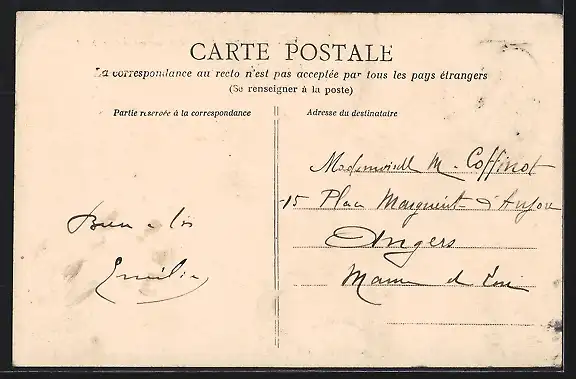 CARTE POSTALE
La correspondance au recto n'est pas acceptée par tous les pays étrangers
(Se renseigner à la poste)
Partie réservée à la correspondance
Adresse du destinataire
Mademoiselle M. Coffinot
15 Place Marguerite d'Anjou
Angers
Maine et Loire
Bien à toi
Emilie